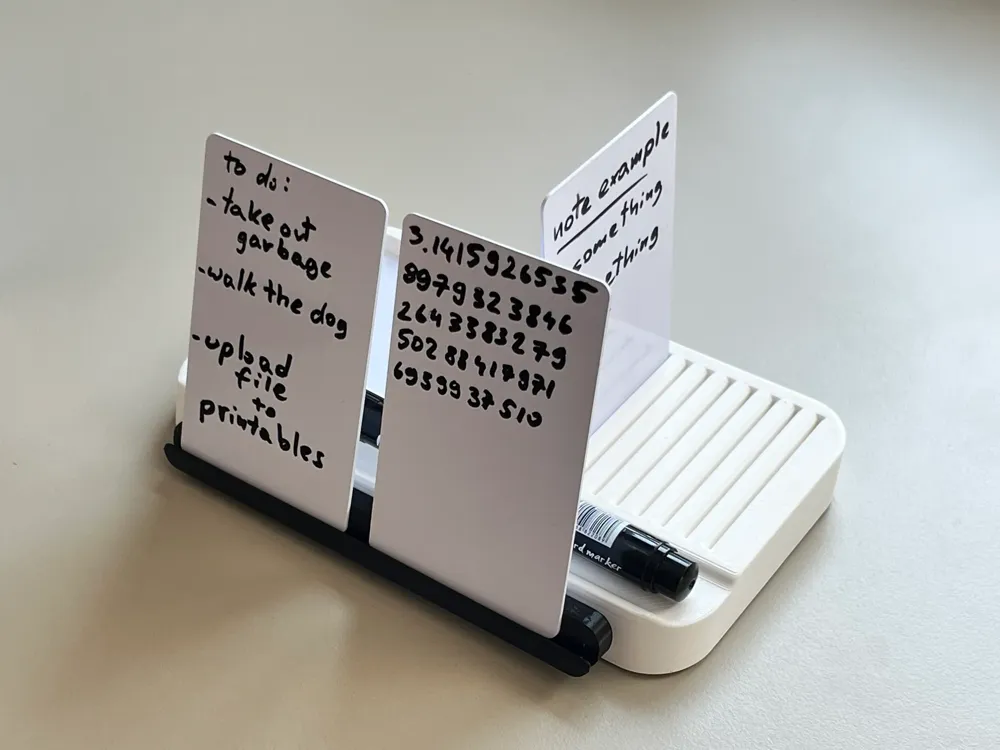 to do:
- take out
garbage
- walk the dog
- upload
file
to
printables
3.1415926535
8979323846
2643383279
50288417971
6959937510
note example
something
ething
rd marker